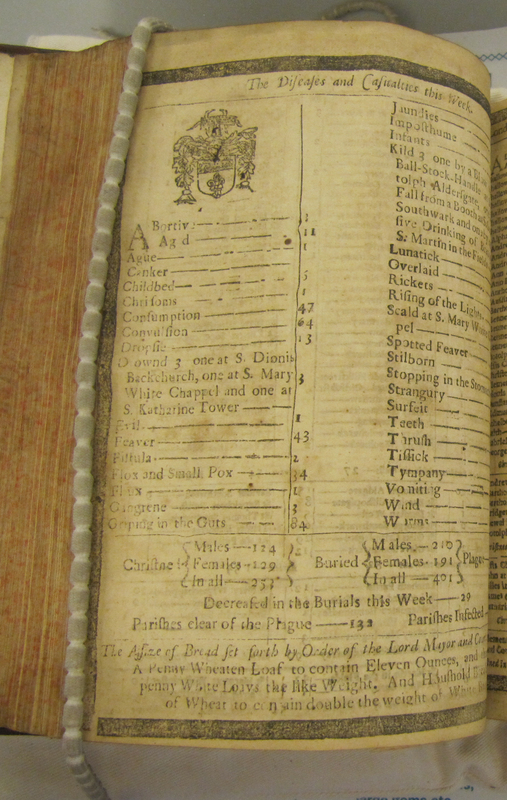 The Diseases and Casualties this Week.
Abortive — 1
Aged — 11
Ague — 1
Canker
Childbed — 5
Chrisoms — 1
Consumption — 47
Convulsion — 64
Dropsie — 13
Drownd 3 one at S. Dionis
Backchurch, one at S. Mary — 3
White Chappel and one at
S. Katharine Tower
Evil — 1
Feaver — 43
Fistula — 2
Flox and Small Pox — 34
Flux — 1
Gangrene — 3
Griping in the Guts — 84
Jaundies
Imposthume
Infants
Kild 3 one by a
Ball-Stock-Handle
tolph Aldersgate,
Fall from a Booth
Southwark and on
sive Drinking of
S. Martin in the Fields
Lunatick
Overlaid
Rickets
Rising of the Lights
Scald at S. Mary
pel
Spotted Feaver
Stilborn
Stopping in the Stom
Strangury
Surfeit
Teeth
Thrush
Tissick
Tympany
Vomiting
Wind
Worms
Christned Males — 124 Females — 129 In all — 253
Buried Males — 210 Females — 191 In all — 401 Plague
Decreased in the Burials this Week — 29
Parishes clear of the Plague — 132 Parishes Infected
The Assize of Bread set forth by Order of the Lord Mayor and
A Penny Wheaten Loaf to contain Eleven Ounces, and
penny White Loaves the like Weight. And Houshold
of Wheat to contain double the weight of White